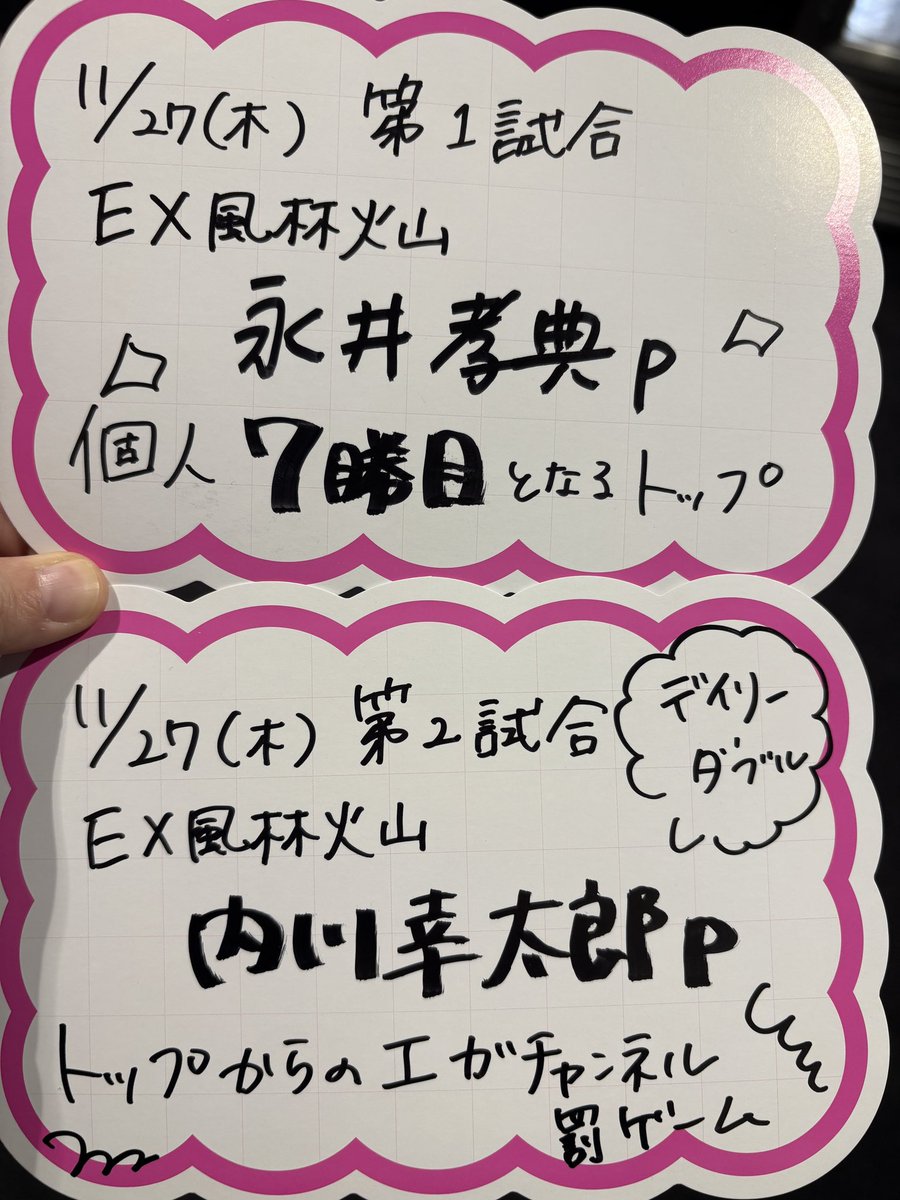 11/27(木) 第1試合
EX風林火山
永井孝典p
個人7勝目となるトップ
11/27(木) 第2試合
デイリー
ダブル
EX風林火山
内川幸太郎p
トップからのエガチャンネル
罰ゲーム